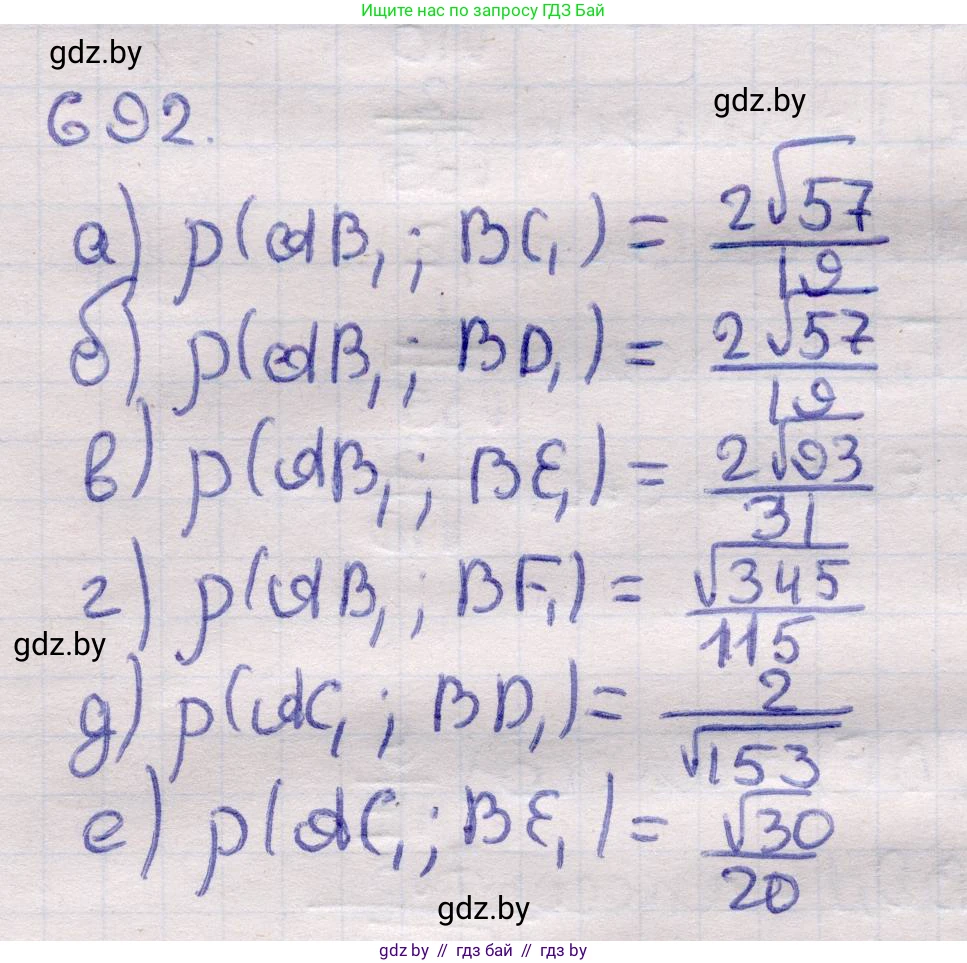 Ищите нас по запросу ГДЗ Бай
gdz.by
692.
gdz.by
а) p(AB₁; BC₁) = 2√57/19
б) p(AB₁; BD₁) = 2√57/19
в) p(AB₁; BE₁) = 2√93/31
г) p(AB₁; BF₁) = √345/115
gdz.by
д) p(AC₁; BD₁) = 2/√153
е) p(AC₁; BE₁) = √30/20
gdz.by
gdz by // гдз бай // гдз by